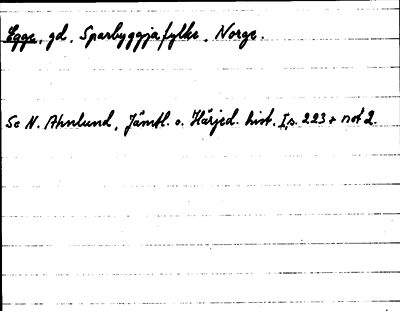 Egge, gd, Sparbyggjafylke, Norge.
Se N. Ahnlund, Jämtl. o. Härjed. hist. I, s. 223 + not 2.